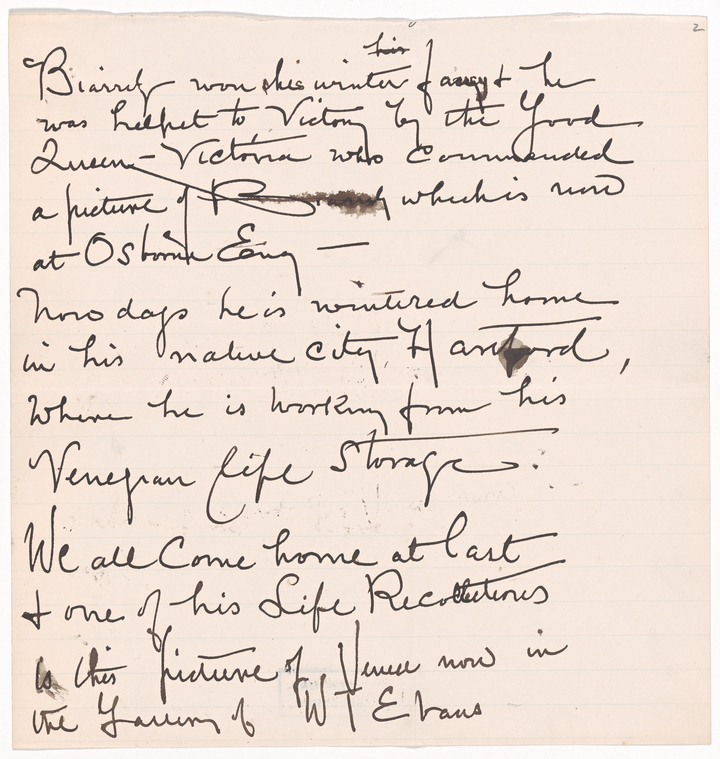 2
his
Biarritz won this winter fancy & he
was helpet to Victory by the Good
Queen - Victoria who commended
a picture of which is now
at Osborne Eng —
Now days he is wintered home
in his native city Hartford,
Where he is working from his
Venezian life Storage.
We all Come home at last
& one of his Life Recollections
Is this picture of Venice now in
the Gallery of WT Evans